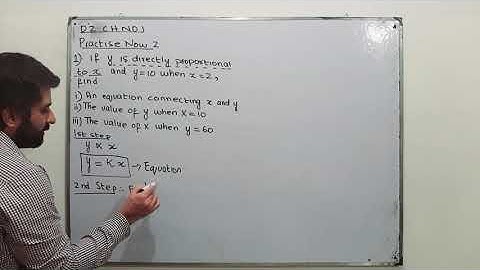 D2 (HNO)
Practise Now 2
1) If y is directly propostional
to x and y=10 when x=2,
find
i) An equation connecting x and y
ii) The value of y when X=10
iii) The value of X when y=60
1st step
y ∝ x
y = K x → Equation
2nd Step :-